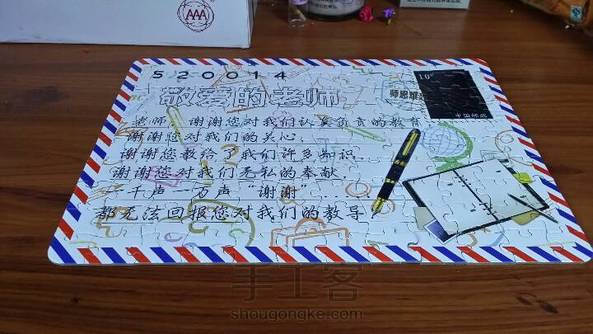 AAA
520014
10
敬爱的老师
师恩难
中国邮政
老师，谢谢您对我们认真负责的教育
谢谢您对我们的关心。
谢谢您教给了我们许多知识.
谢谢您对我们无私的奉献.
千声一万声“谢谢”......
都无法回报您对我们的教导
手工客
shougongke.com